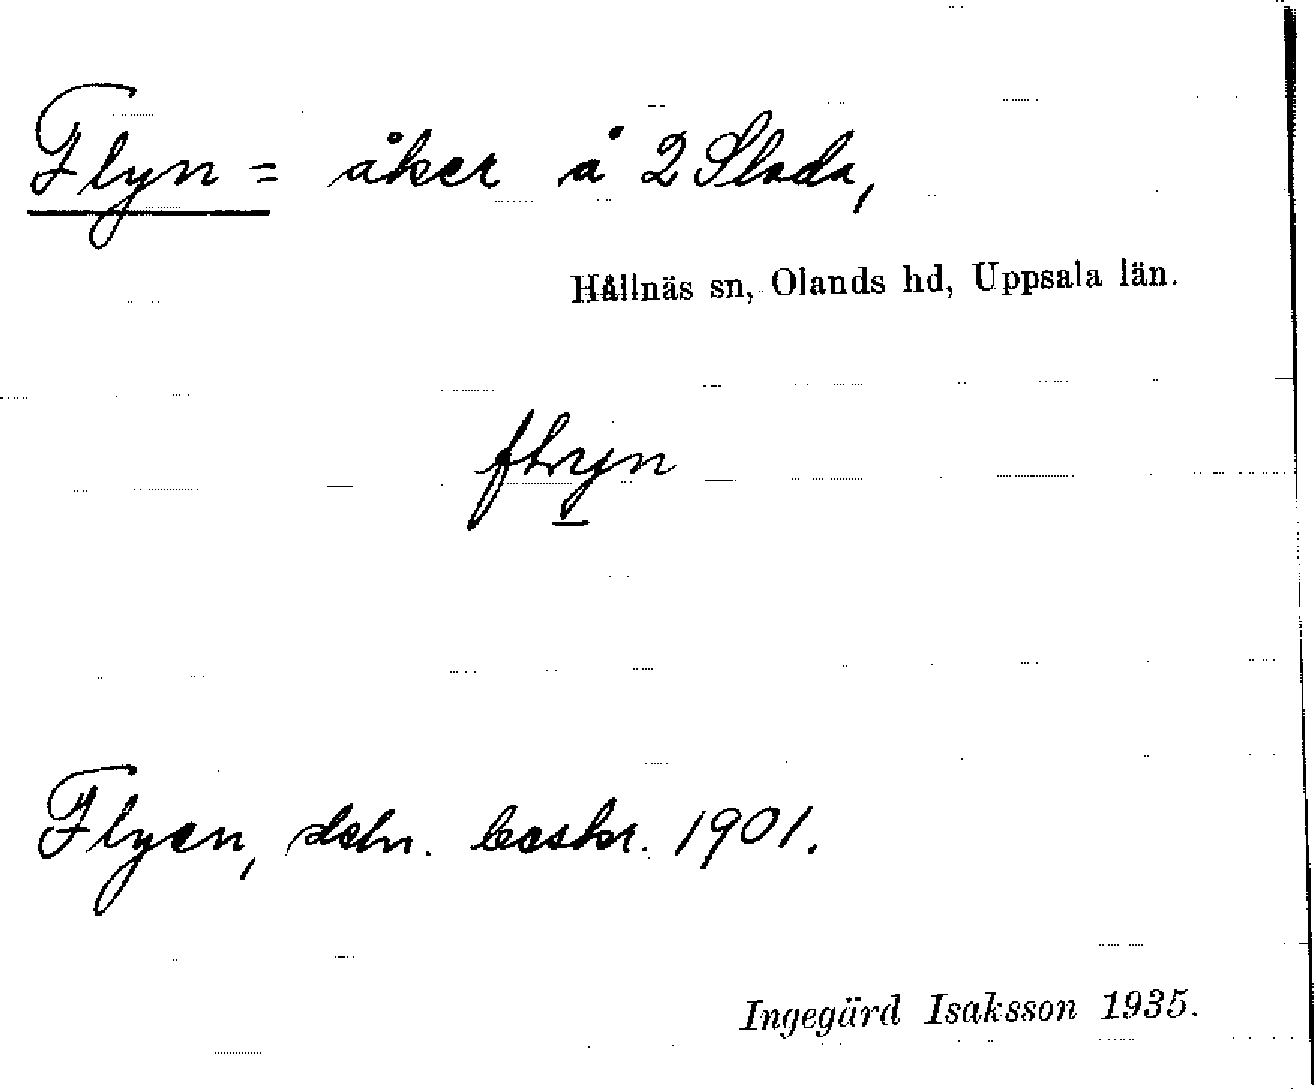 Flyn = åker å 2 Slada,
Hållnäs sn, Olands hd, Uppsala län.
Flyen, beskr. 1901.
Ingegärd Isaksson 1935.